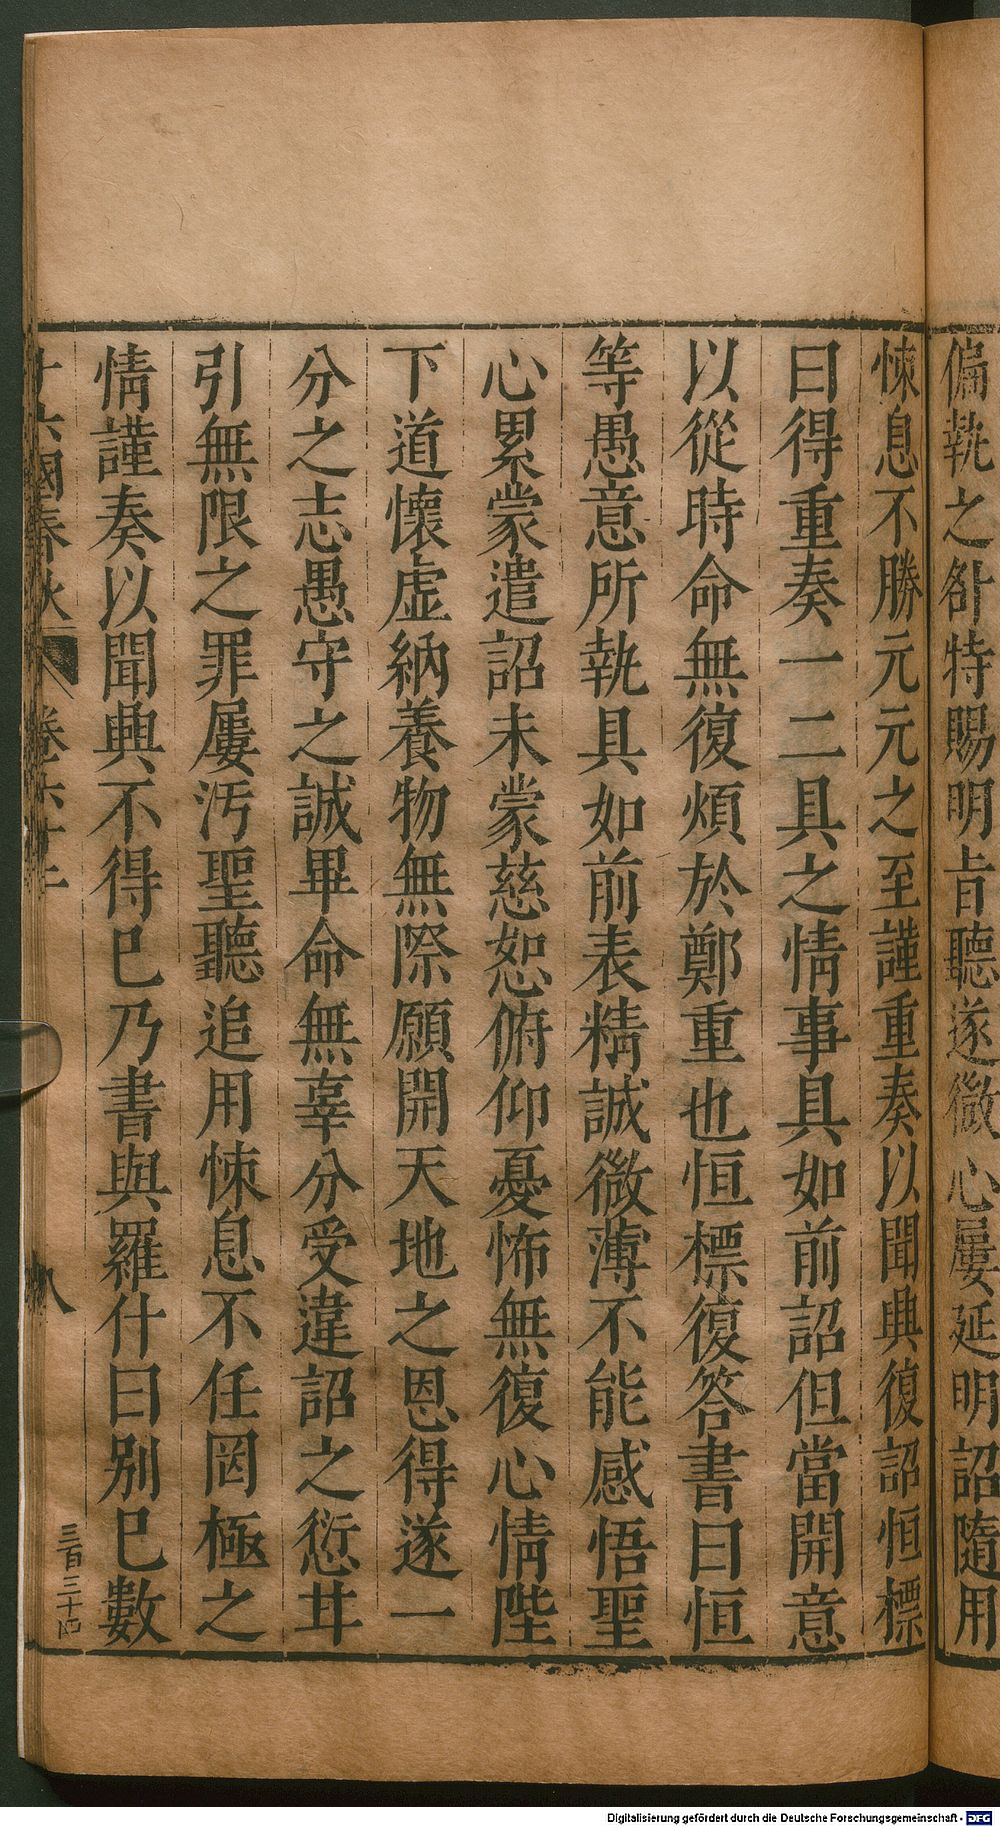 偏執之㫁特賜明旨聽遂微心屢延明詔隨用
悚息不勝元元之至謹重奏以聞興復詔恒標
曰得重奏一二具之情事具如前詔但當開意
以從時命無復煩於鄭重也恒標復答書曰恒
等愚意所執具如前表精誠微薄不能感悟聖
心累蒙遣詔未蒙慈恕俯仰憂怖無復心情陛
下道懷虛納養物無際願開天地之恩得遂一
分之志愚守之誠畢命無辜分受違詔之愆并
引無限之罪屢汚聖聽追用悚息不任罔極之
情謹奏以聞興不得巳乃書與羅什曰別巳數
十六國春秋 卷六十二 八
三百三十四
Digitalisierung gefördert durch die Deutsche Forschungsgemeinschaft - DFG